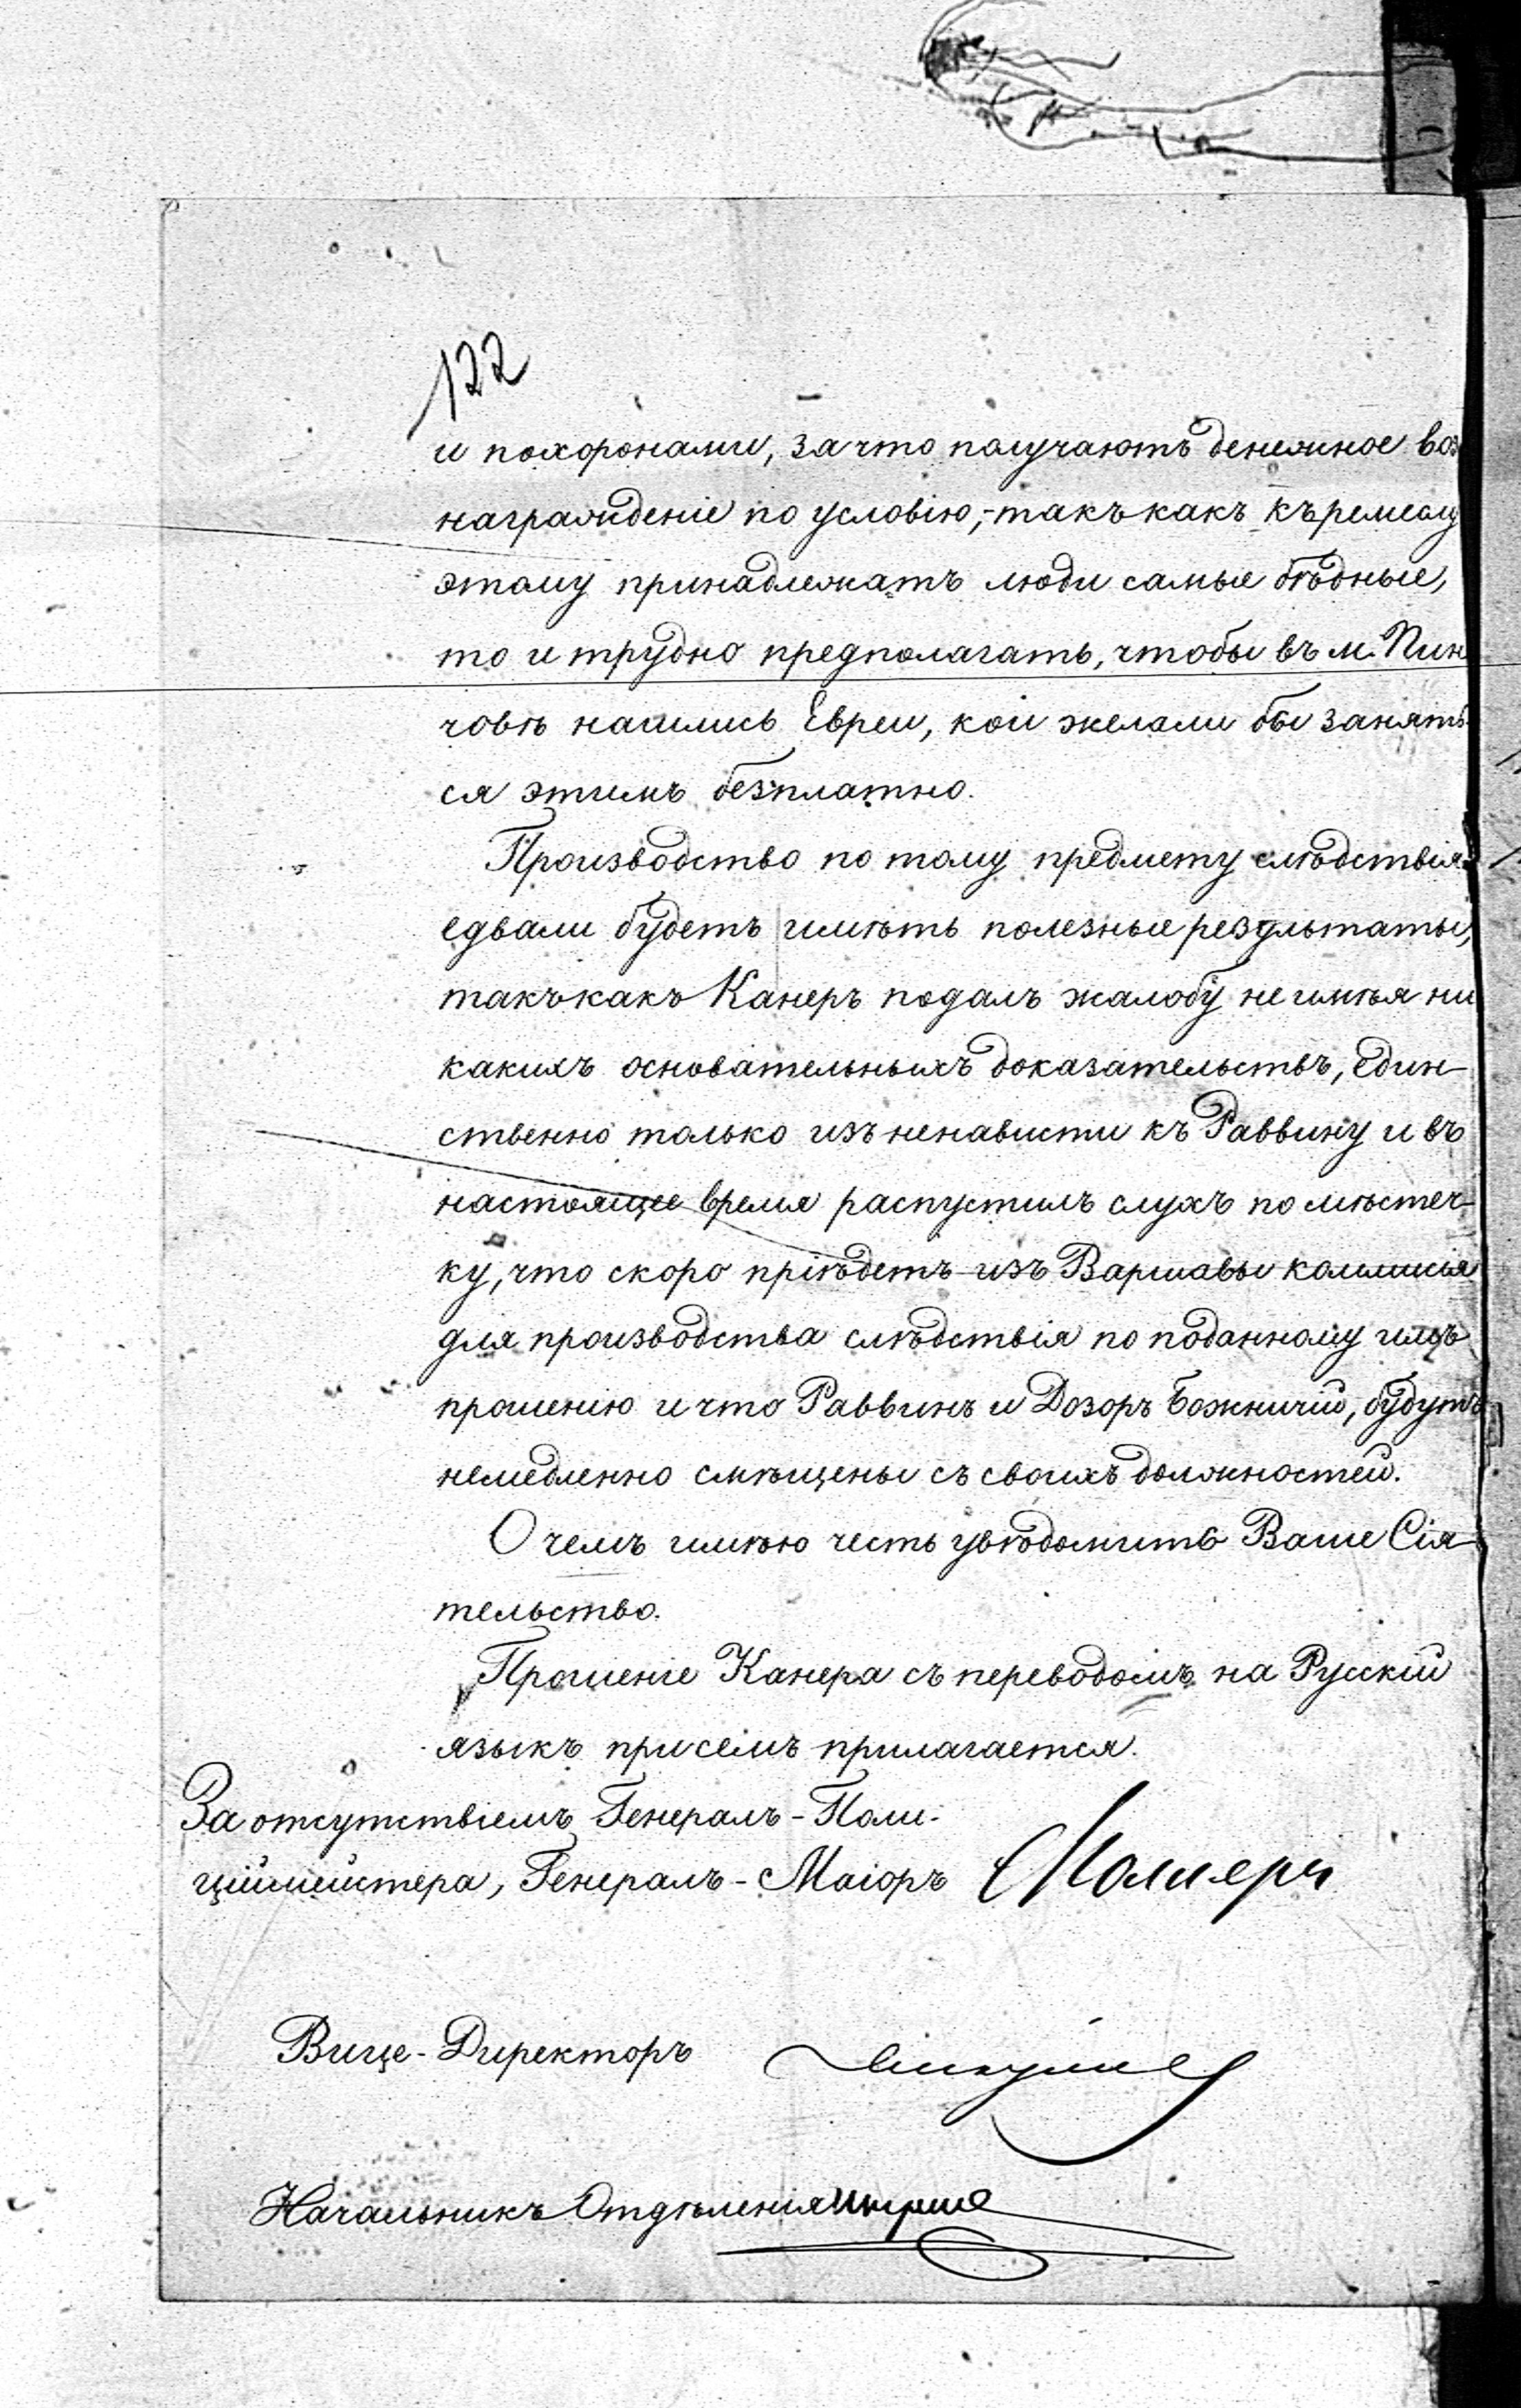 122
и похоронами, за что получаютъ денежное воз
награжденіе по условію,-такъ какъ къ ремеслу
этому принадлежатъ люди самые бѣдные,
то и трудно предполагать, чтобы въ м. Пин
човѣ нашлись Евреи, кои желали бы занять
ся этимъ безплатно.
Производство по тому предмету слѣдствія
едвали будетъ имѣть полезные результаты,
такъ какъ Канеръ подалъ жалобу не имѣя ни
какихъ основательныхъ доказательствъ, един-
ственно только изъ ненависти къ Раввину и въ
настоящее время распустилъ слухъ по мѣстеч-
ку, что скоро пріѣдетъ изъ Варшавы коммисія
для производства слѣдствія по поданному имъ
прошенію и что Раввинъ и Дозоръ Божничій, будутъ
немедленно смѣщены съ своихъ должностей.
О чемъ имѣю честь увѣдомить Ваше Сія-
тельство.
Прошеніе Канера съ переводомъ на Русскій
языкъ при семъ прилагается.
За отсутствіемъ Генералъ-Поли-
ціймейстера, Генералъ-Маіоръ
Вице-Директоръ
Начальникъ Отдѣленія